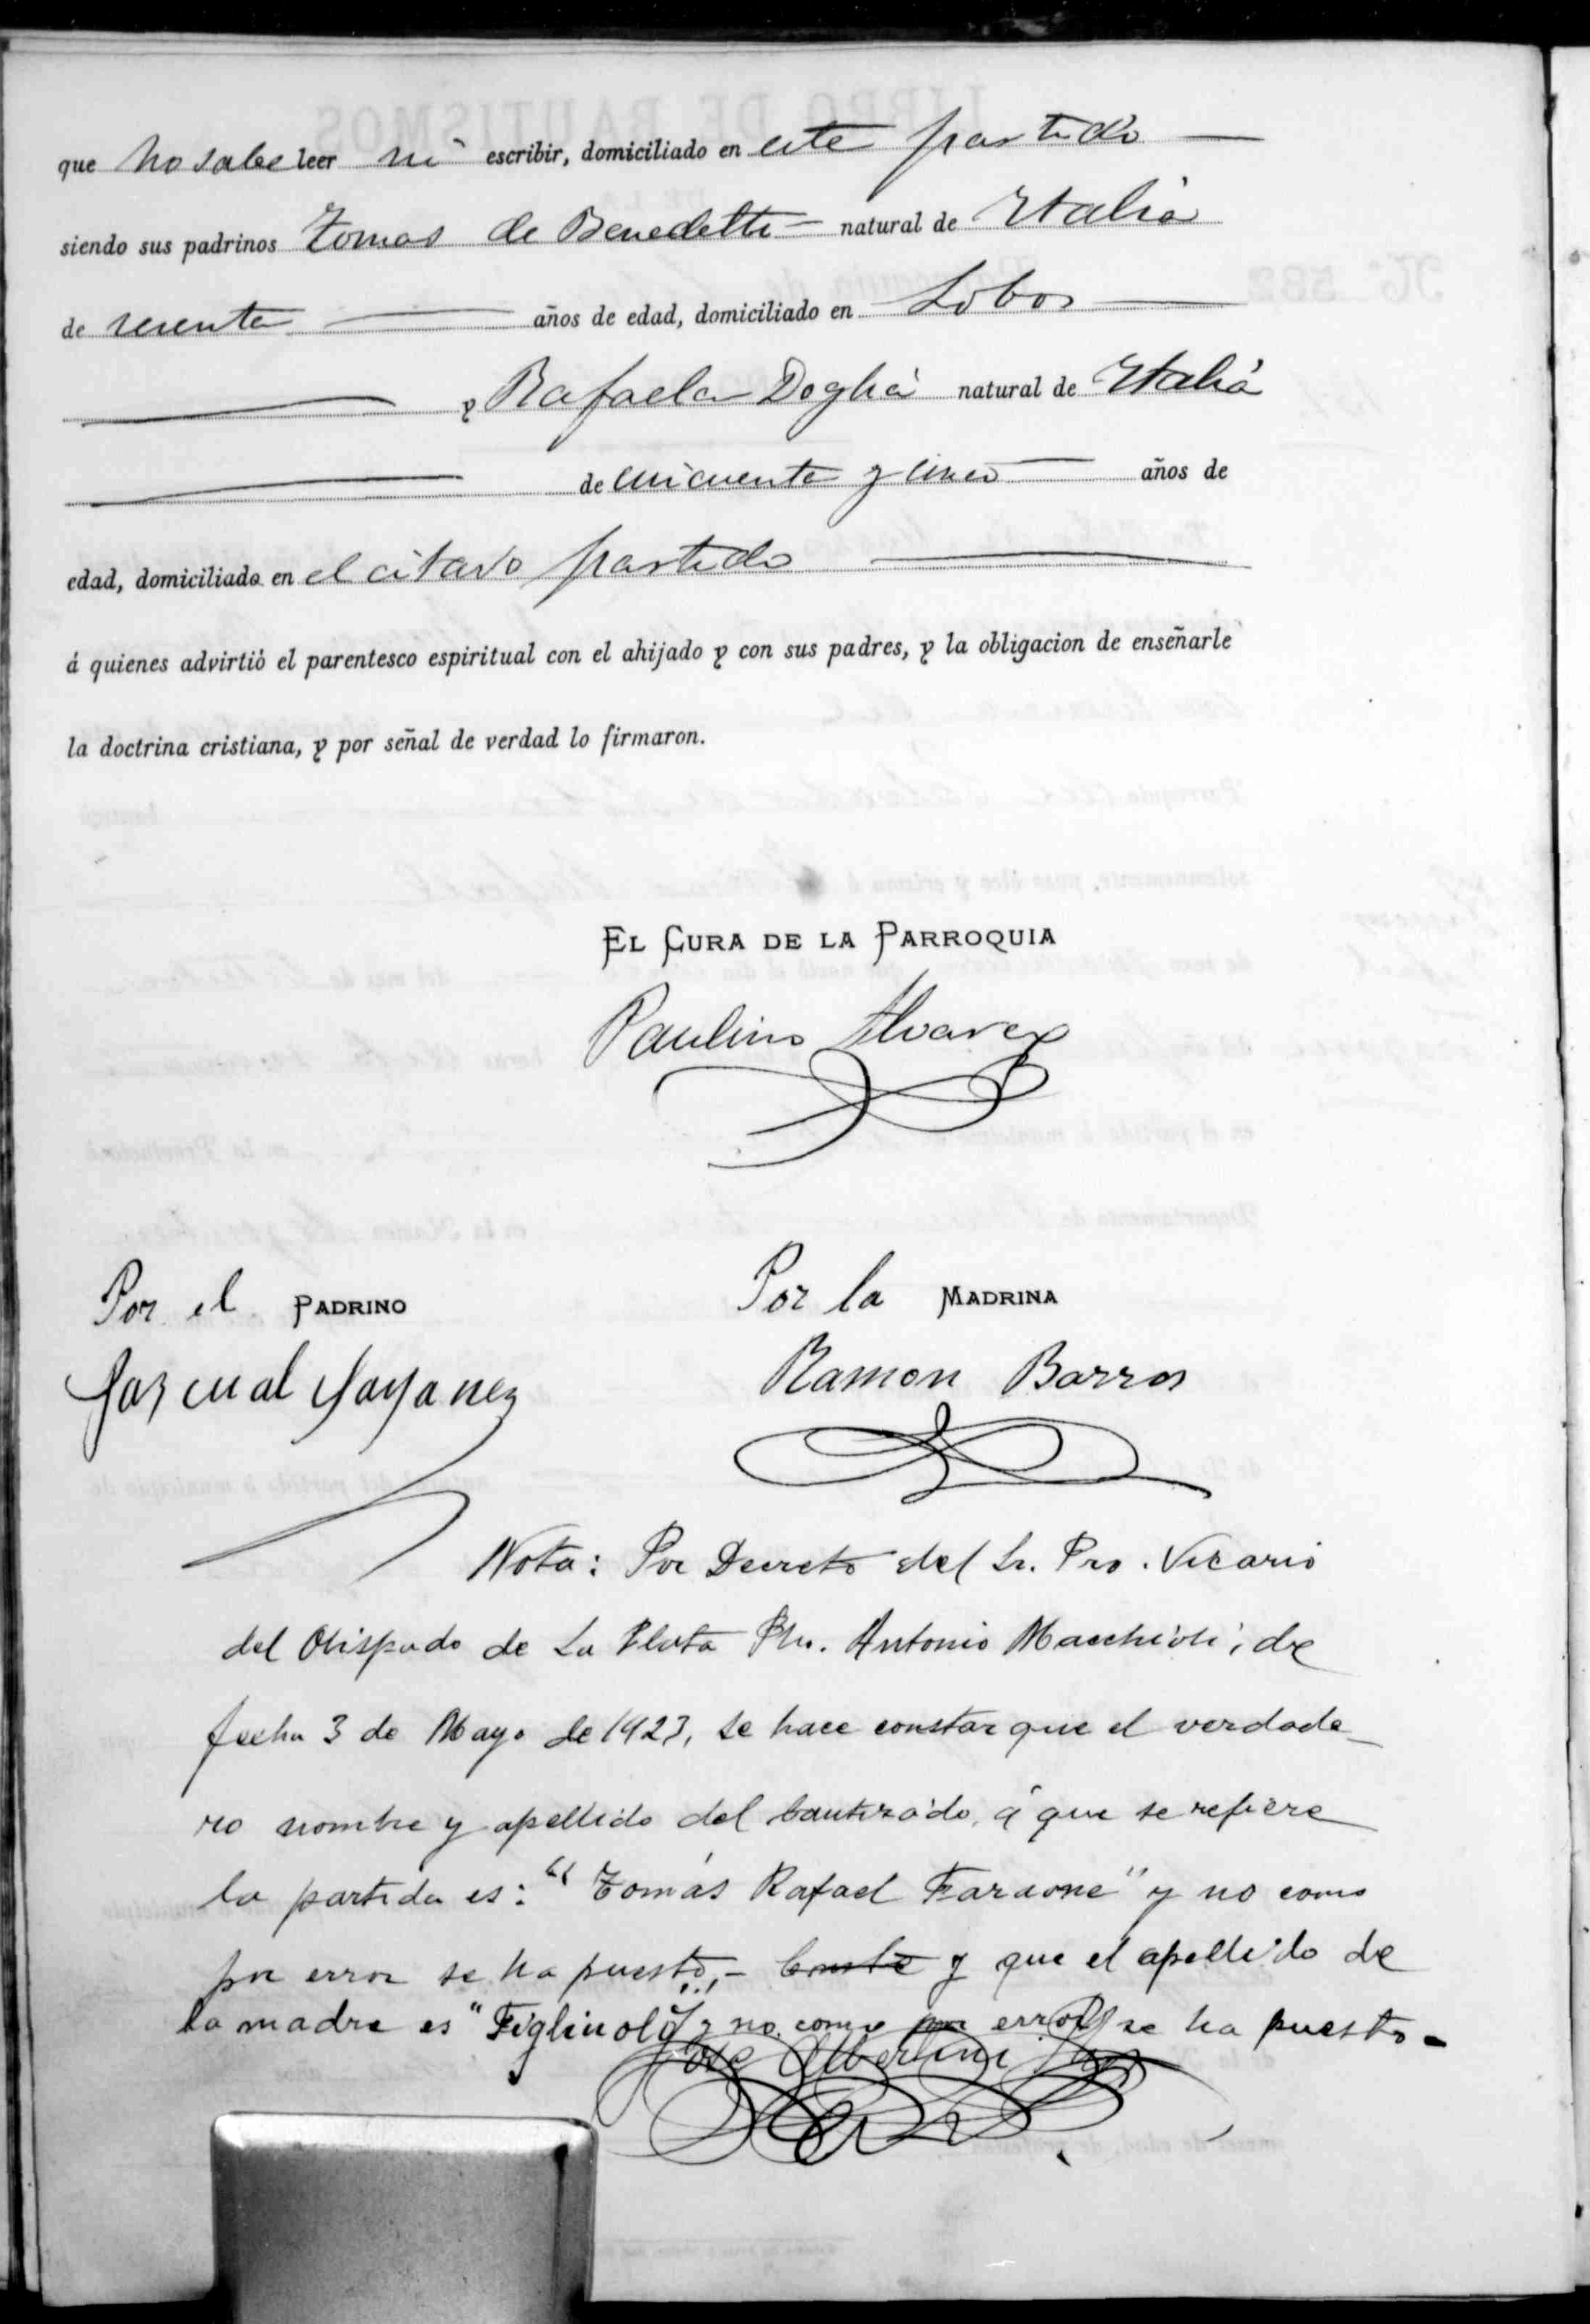 que no sabe leer ni escribir, domiciliado en este partido
siendo sus padrinos Tomas de Benedetti natural de Italia
de sesenta años de edad, domiciliado en Lobos
y Rafaela Doglia natural de Italia
de cincuenta y cinco años de
edad, domiciliado en el citado partido
á quienes advirtió el parentesco espiritual con el ahijado y con sus padres, y la obligacion de enseñarle
la doctrina cristiana, y por señal de verdad lo firmaron.
EL CURA DE LA PARROQUIA
Paulino Alvarez
Por el PADRINO
Por la MADRINA
Pascual Sayanes
Ramon Barros
Nota: Por Decreto del Sr. Pro. Vicario
del Obispado de La Plata Pbro. Antonio Macchioli, de
fecha 3 de Mayo de 1923, se hace constar que el verdade_
ro nombre y apellido del bautizado, á que se refiere
la partida es: "Tomás Rafael Faraone" y no como
por error se ha puesto,- Conste y que el apellido de
la madre es "Figlinolo" y no como por error se ha puesto-
José Albertini